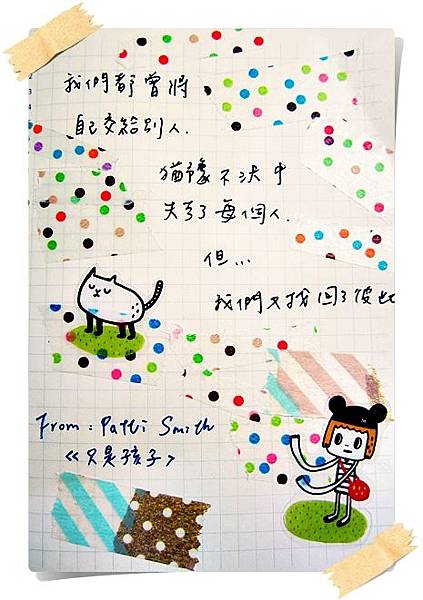 我們都曾將
自己交給別人.
猶豫不決中
失去了每個人.
但...
我們又找回了彼此
From : Patti Smith
《只是孩子》